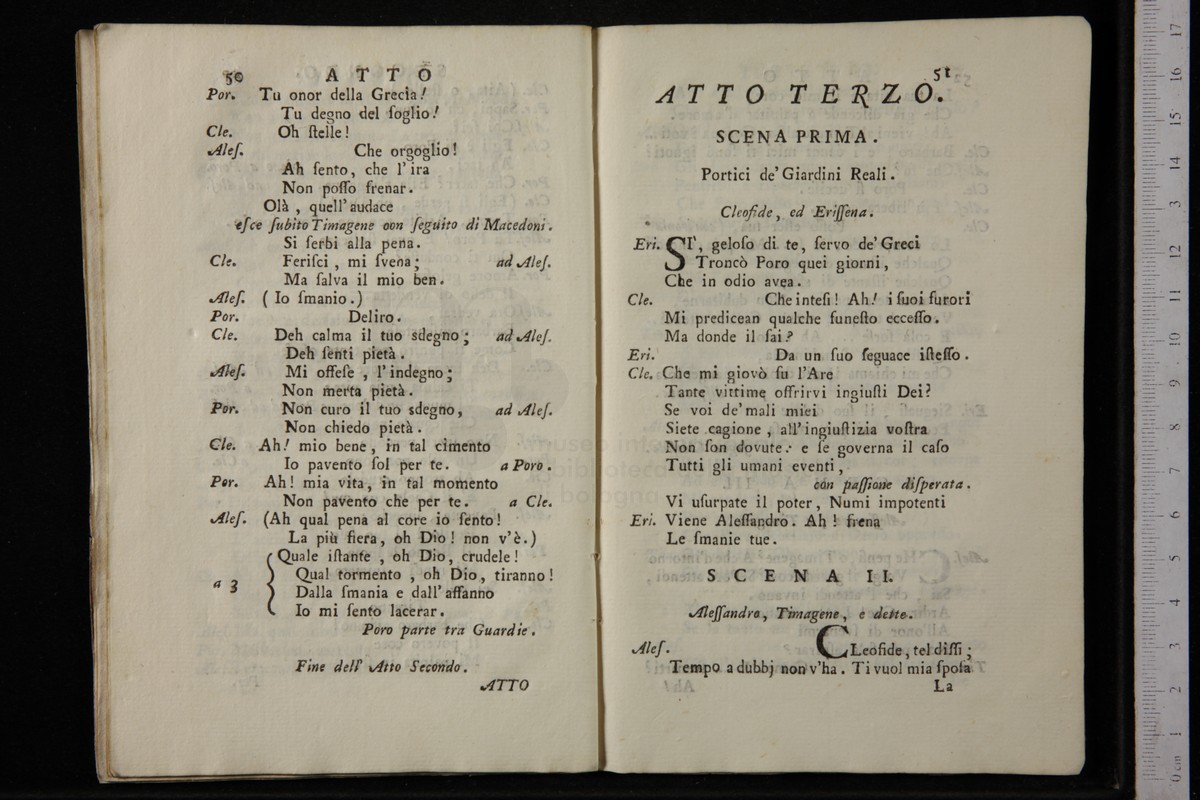 50 ATTO
Por. Tu onor della Grecia!
Tu degno del ſoglio!
Cle. Oh ſtelle!
Aleſ. Che orgoglio!
Ah ſento, che l'ira
Non poſſo frenar.
Olà, quell'audace
eſce ſubito Timagene con ſeguito di Macedoni.
Si ſerbi alla pena.
Cle. Feriſci, mi ſvena; ad Aleſ.
Ma ſalva il mio ben.
Aleſ. (Io ſmanio.)
Por. Deliro.
Cle. Deh calma il tuo sdegno; ad Aleſ.
Deh ſenti pietà.
Aleſ. Mi offeſe, l'indegno;
Non merta pietà.
Por. Non curo il tuo sdegno, ad Aleſ.
Non chiedo pietà.
Cle. Ah! mio bene, in tal cimento
Io pavento ſol per te. a Poro.
Por. Ah! mia vita, in tal momento
Non pavento che per te. a Cle.
Aleſ. (Ah qual pena al core io ſento!
La più fiera, oh Dio! non v'è.)
a 3 { Quale iſtante, oh Dio, crudele!
Qual tormento, oh Dio, tiranno!
Dalla ſmania e dall'affanno
Io mi ſento lacerar.
Poro parte tra Guardie.
Fine dell' Atto Secondo.
ATTO
51
ATTO TERZO.
SCENA PRIMA.
Portici de' Giardini Reali.
Cleofide, ed Eriſſena.
Eri. SI', geloſo di te, ſervo de' Greci
Troncò Poro quei giorni,
Che in odio avea.
Cle. Che inteſi! Ah! i ſuoi furori
Mi predicean qualche funeſto ecceſſo.
Ma donde il ſai?
Eri. Da un ſuo ſeguace iſteſſo.
Cle. Che mi giovò ſu l'Are
Tante vittime offrirvi ingiuſti Dei?
Se voi de' mali miei
Siete cagione, all'ingiuſtizia voſtra
Non ſon dovute: e ſe governa il caſo
Tutti gli umani eventi,
con paſſione diſperata.
Vi uſurpate il poter, Numi impotenti
Eri. Viene Aleſſandro. Ah! frena
Le ſmanie tue.
SCENA II.
Aleſſandro, Timagene, e dette.
Aleſ. CLeofide, tel diſſi;
Tempo a dubbj non v'ha. Ti vuol mia ſpoſa
La
museo int
biblioteca
bologna
0 cm 1 2 3 4 5 6 7 8 9 10 11 12 13 14 15 16 17